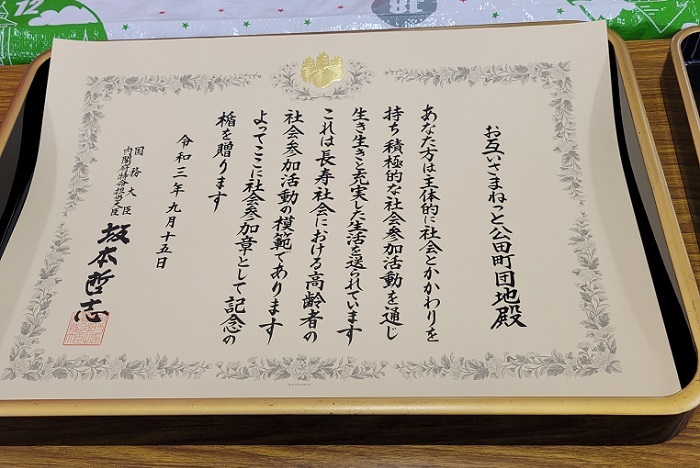 お互いさまねっと公田町団地殿
あなた方は主体的に社会とかかわりを
持ち積極的な社会参加活動を通じ
生き生きと充実した生活を送られています
これは長寿社会における高齢者の
社会参加活動の模範であります
よってここに社会参加章として記念の
楯を贈ります
令和三年九月十五日
国務大臣
内閣府特命担当大臣
坂本哲志
12
18